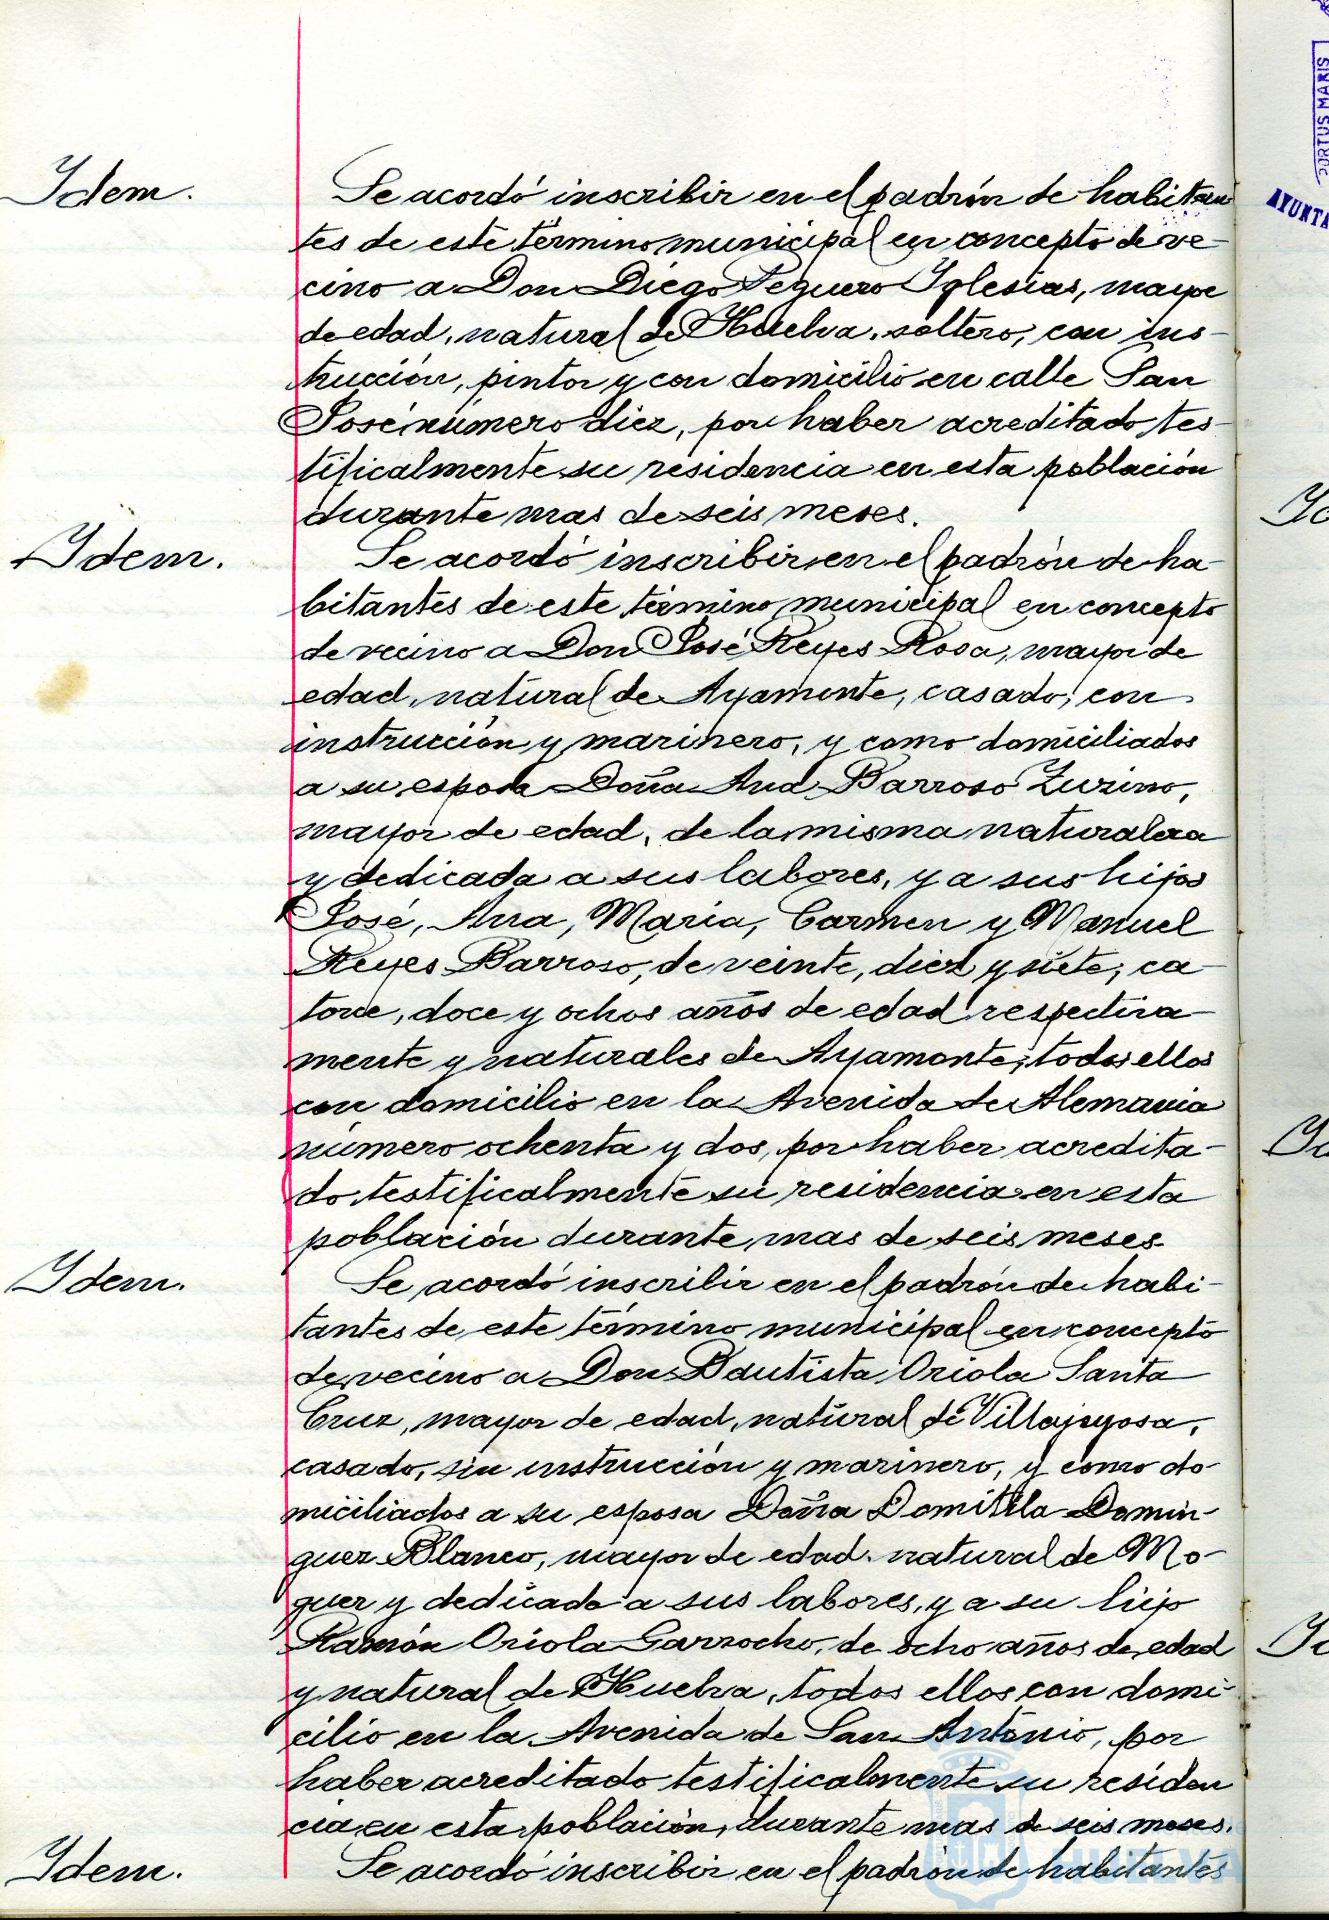 Ydem.
Se acordó inscribir en el padrón de habitan
tes de este término municipal en concepto de ve-
cino a Don Diego Peguero Yglesias, mayor
de edad, natural de Huelva, soltero, con ins-
trucción, pintor y con domicilio en calle San
José número diez, por haber acreditado tes-
tificalmente su residencia en esta población
durante mas de seis meses.
Ydem.
Se acordó inscribir en el padrón de ha-
bitantes de este término municipal en concepto
de vecino a Don José Reyes Rosa, mayor de
edad, natural de Ayamonte, casado, con
instrucción y marinero, y como domiciliados
a su esposa Doña Ana Barroso
mayor de edad, de la misma naturaleza
y dedicada a sus labores, y a sus hijos
José, Ana, María, Carmen y Manuel
Reyes Barroso, de veinte, diez y siete, ca-
torce, doce y ochos años de edad respectiva-
mente y naturales de Ayamonte; todos ellos
con domicilio en la Avenida de Alemania
número ochenta y dos, por haber acredita-
do testificalmente su residencia en esta
población durante mas de seis meses.
Ydem.
Se acordó inscribir en el padrón de habi-
tantes de este término municipal en concepto
de vecino a Don Bautista Oriola Santa
Cruz, mayor de edad, natural de Villajoyosa,
casado, sin instrucción y marinero, y como do-
miciliados a su esposa Doña Domitila Domin-
guez Blanco, mayor de edad, natural de Mo-
guer y dedicada a sus labores, y a su hijo
Ramón Oriola Garrocho, de ocho años de edad
y natural de Huelva, todos ellos con domi-
cilio en la Avenida de San Antonio, por
haber acreditado testificalmente su residen
cia en esta población, durante mas de seis meses.
Ydem.
Se acordó inscribir en el padrón de habitantes
PORTUS MARIS
AYUNTA